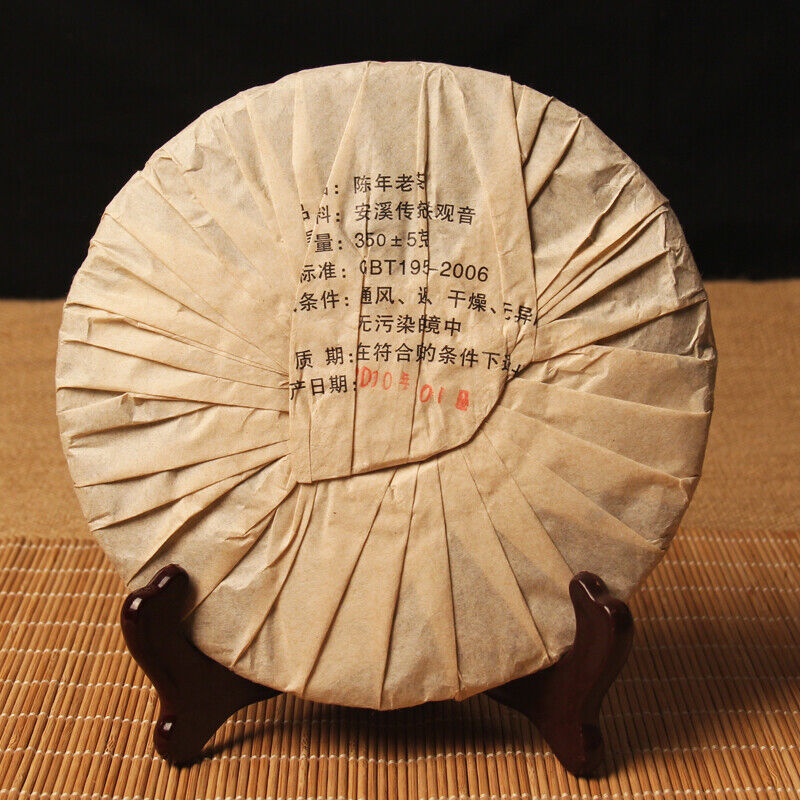 ：陈年老
料：安溪传铁观音
量：350±5克
标准：GBT195-2006
条件：通风、干燥、无异
无污染的境中
质 期：在符合的条件下
产日期：2010年01